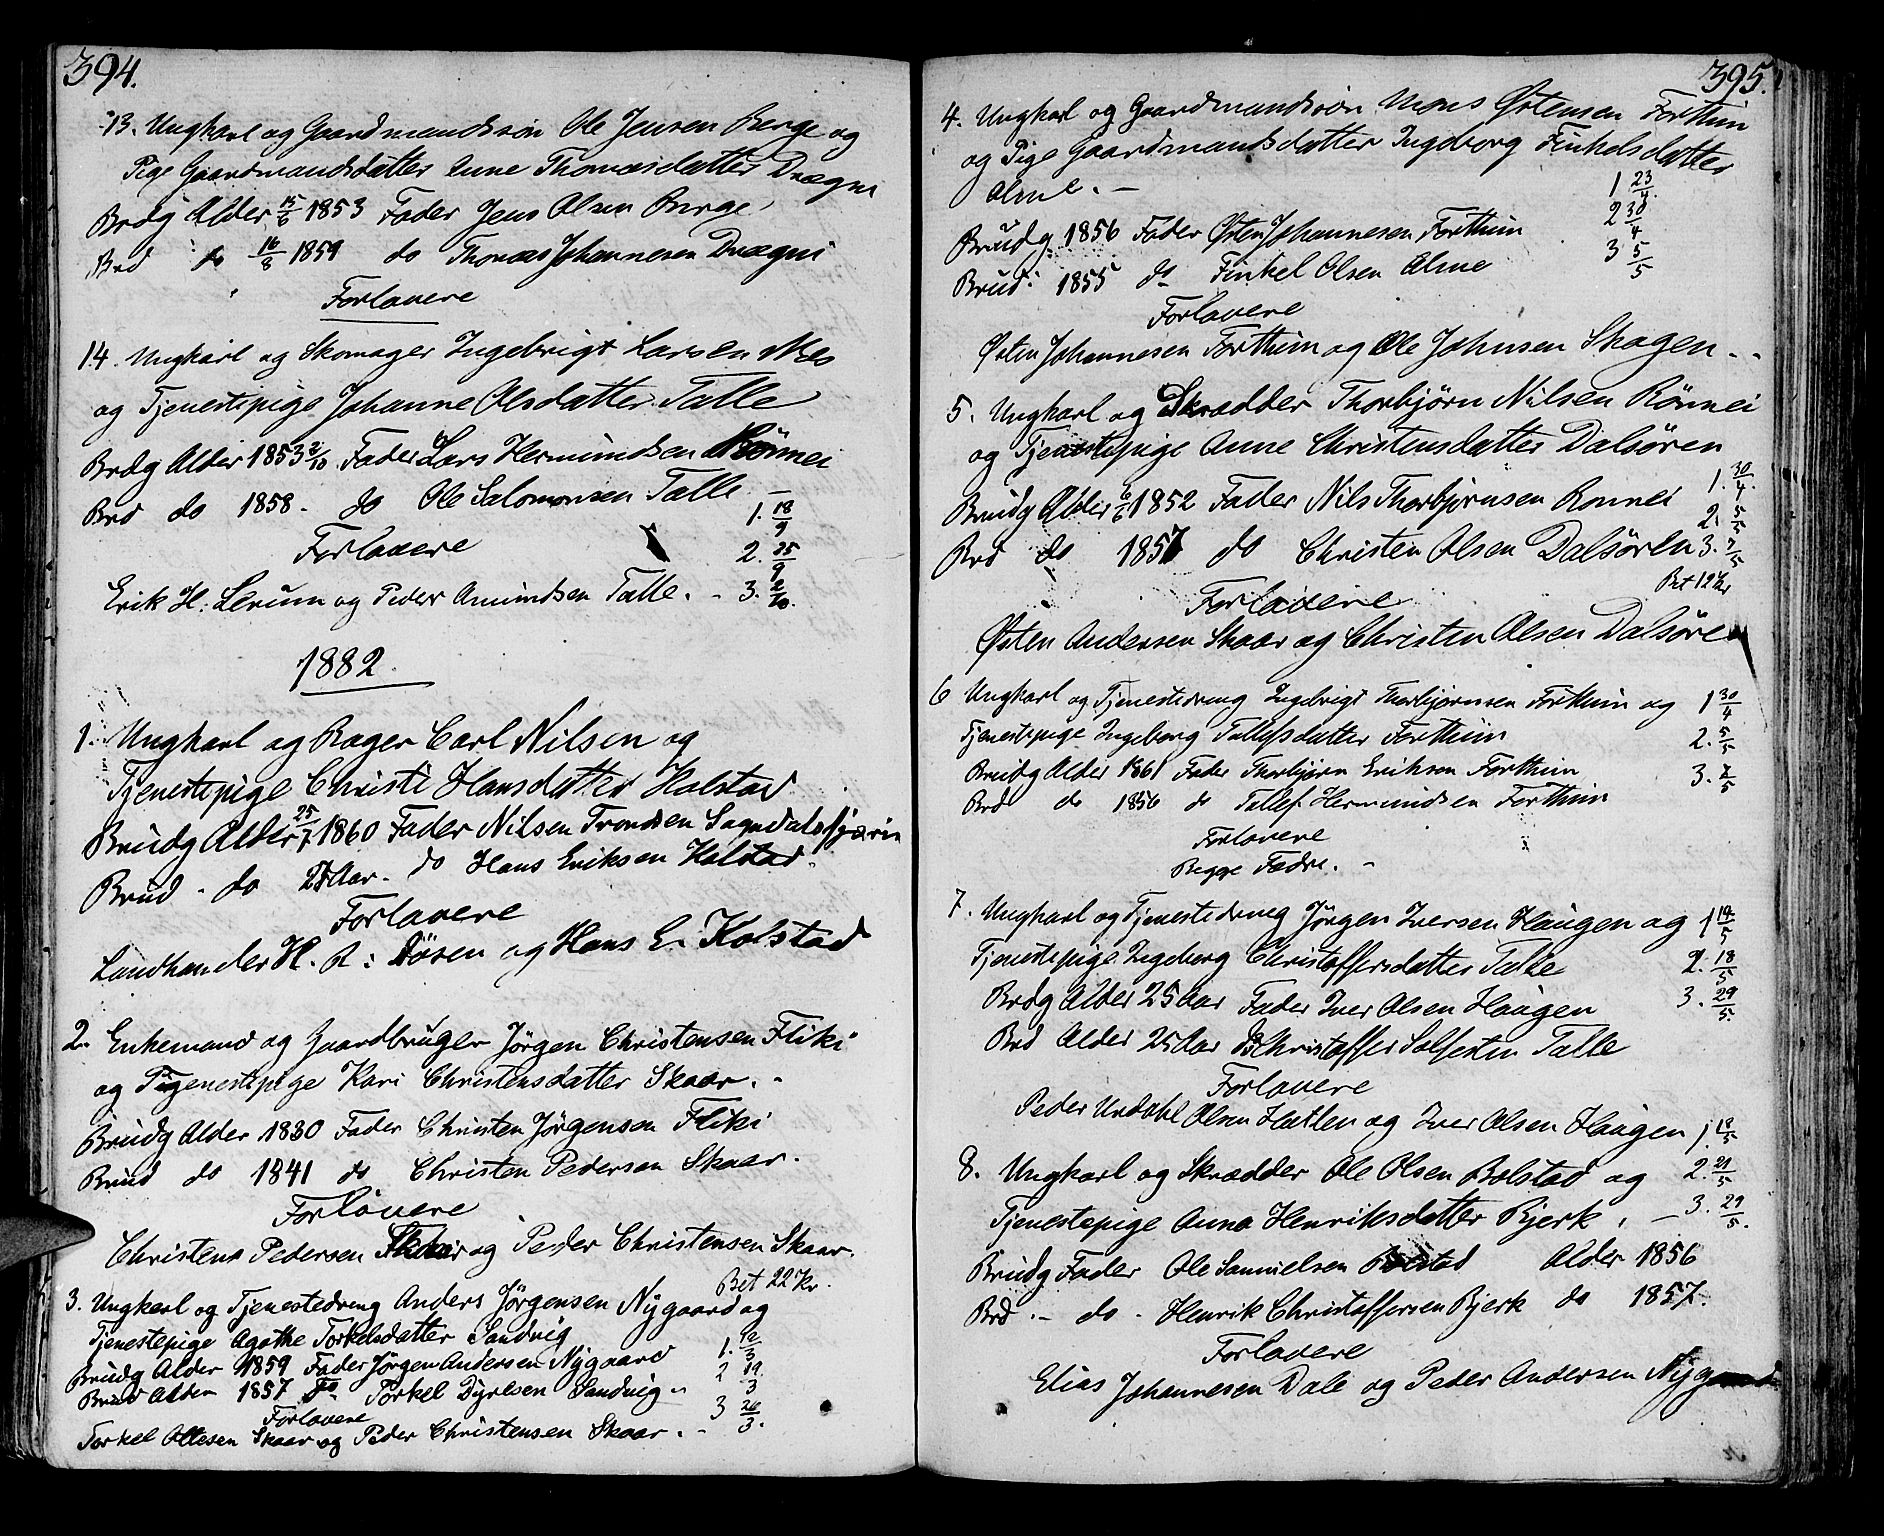 394.
13. Ungkarl og Gaardmandssøn Ole Jensen Berge og
Pige Gaardmandsdatter Anne Thomasdatter Drægni
Brdg Alder 15/6 1853 Fader Jens Olsen Berge
Brd do 16/8 1859 do Thomas Johannesen Drægni
Forlovere
14. Ungkarl og Skomager Ingebrigt Larsen Mes
og Tjenestepige Johanne Olsdatter Talle
Brdg Alder 1853 2/10 Fader Lars Hermundsen Rönnei
Brd do 1858. do Ole Salomonsen Talle
1. 18/9
Forlovere
2. 25/9
Erik H: Lerum og Peder Amundsen Talle. - 3. 2/10.
1882
1. Ungkarl og Bager Carl Nilsen og
Tjenestepige Christi Hansdatter Kolstad
Brudg Alder 25/7 1860 Fader Nilsen Trondsen Sogndalsfjæren
Brud - do 25 Aar. do Hans Eriksen Kolstad.
Forlovere
Landhander H. R: Døsen og Hans E. Kolstad
2. Enkemand og Gaardbruger Jørgen Christensen Fliki
og Tjenestepige Kari Christensdatter Skaar. -
Brudg Alder 1830 Fader Christen Jørgensen Fliki
Brud do 1841 do Christen Pedersen Skaar.
Forlovere
Christen Pedersen Skaar og Peder Christensen Skaar.
Bet 22 Kr.
3. Ungkarl og Tjenestedreng Anders Jørgensen Nygaard og
Tjenestepige Agathe Torkelsdatter Sandvig
1. 12/3
Brudg Alder 1859 Fader Jørgen Andersen Nygaard
2 19/3
Brud Alder 1857 do Torkel Dyrlsen Sandvig -
3 26/3.
Forlovere
Torkel Ottesen Skaar og Peder Christensen Skaar. -
395.
4. Ungkarl og Gaardmandssøn Mons Østensen Forthun
og Pige Gaardmandsdatter Ingeborg Finkelsdatter
Alme. -
1 23/4.
2 30/4
Brudg 1856 Fader Østen Johannesen Forthun
3 5/5
Brud: 1855 do Finkel Olsen Alme
Forlovere
Østen Johannesen Forthun og Ole Johnsen Skagen - -
5. Ungkarl og Skrædder Thorbjørn Nilsen Rönnei
og Tjenestepige Anne Christensdatter Dalsøren
1. 30/4.
Brudg Alder 6/6 1852 Fader Nils Thorbjørnsen Ronnei
2. 5/5
Brd do 1857 do Christen Olsen Dalsøren 3. 7/5
Bet 12 Kr
Forlovere
Østen Andersen Skaar og Christen Olsen Dalsøren
6 Ungkarl og Tjenestedreng Ingebrigt Thorbjørnsen Forthun og 1 30/4
Tjenestepige Ingeborg Tollefsdatter Forthun
2. 5/5
Brudg Alder 1861 Fader Thorbjørn Eriksen Forthun
3. 7/5
Brd do 1856 do Tollef Hermundsen Forthun
Forlovere
Begge Fædre. -
7. Ungkarl og Tjenestedreng Jörgen Iversen Haugen og 1 14/5
Tjenestepige Ingeborg Christoffersdatter Talle
2. 18/5
Brdg Alder 25 Aar Fader Iver Olsen Haugen
3. 29/5.
Brd Alder 25 Aar do Christoffer Solfesten Talle
Forlovere
Peder Undahl Olsen Hatlen og Iver Olsen Haugen
1 18/5
8. Ungkarl og Skrædder Ole Olsen Bolstad og
2. 21/5
Tjenestepige Anna Henriksdatter Bjerk. - 3. 29/5.
Brudg Fader Ole Samuelsen Bolstad Alder 1856
Brd. - do - Henrik Christoffersen Bjerk do 1857.
Forlovere
Elias Johannesen Dale og Peder Andersen Nygaard